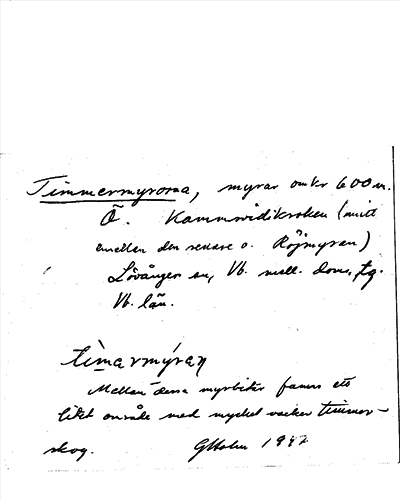 Timmermyrorna, myrar omkr 600 m.
Ö. Kammvidikroken (mitt
emellan den senare o. Röjmyran)
Lövånger sn, Vb. mell. doms. tg.
Vb. län.
timarmýran
Mellan dessa myrbitar fanns ett
litet område med mycket vacker timmer-
skog. GHolm 1942